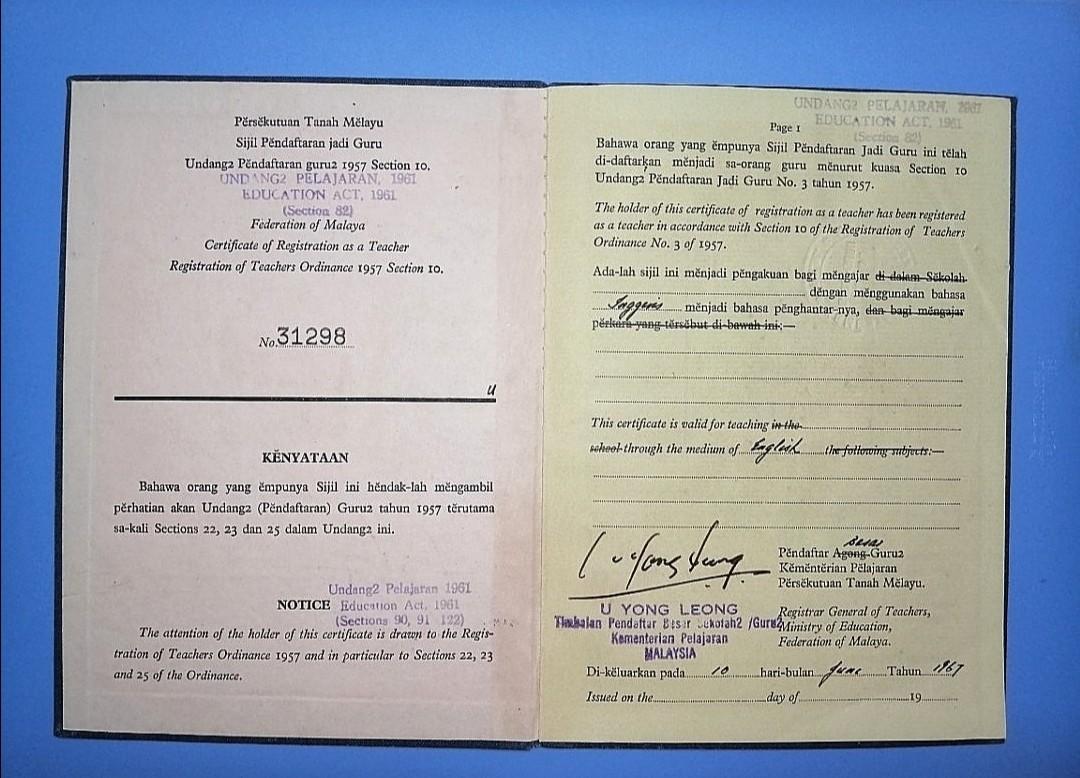 Pĕrsĕkutuan Tanah Mĕlayu
Sijil Pĕndaftaran jadi Guru
Undang2 Pĕndaftaran guru2 1957 Section 10.
UNDANG2 PELAJARAN, 1961
EDUCATION ACT, 1961
(Section 82)
Federation of Malaya
Certificate of Registration as a Teacher
Registration of Teachers Ordinance 1957 Section 10.
No. 31298
u
KĔNYATAAN
Bahawa orang yang ĕmpunya Sijil ini hĕndak-lah mĕngambil
pĕrhatian akan Undang2 (Pĕndaftaran) Guru2 tahun 1957 tĕrutama
sa-kali Sections 22, 23 dan 25 dalam Undang2 ini.
Undang2 Pelajaran 1961
NOTICE Education Act, 1961
(Sections 90, 91 122)
The attention of the holder of this certificate is drawn to the Regis-
tration of Teachers Ordinance 1957 and in particular to Sections 22, 23
and 25 of the Ordinance.
UNDANG2 PELAJARAN, 1961
EDUCATION ACT, 1961
(Section 82)
Page 1
Bahawa orang yang ĕmpunya Sijil Pĕndaftaran Jadi Guru ini tĕlah
di-daftarkan mĕnjadi sa-orang guru mĕnurut kuasa Section 10
Undang2 Pĕndaftaran Jadi Guru No. 3 tahun 1957.
The holder of this certificate of registration as a teacher has been registered
as a teacher in accordance with Section 10 of the Registration of Teachers
Ordinance No. 3 of 1957.
Ada-lah sijil ini mĕnjadi pĕngakuan bagi mĕngajar di dalam Sĕkolah
dĕngan mĕnggunakan bahasa
Inggeris mĕnjadi bahasa pĕnghantar-nya, dan bagi mĕngajar
pĕrkara yang tĕrsĕbut di-bawah ini:—
This certificate is valid for teaching in the
school through the medium of English the following subjects:—
Besar
Pĕndaftar Agong Guru2
Kĕmĕntĕrian Pĕlajaran
Pĕrsĕkutuan Tanah Mĕlayu.
U YONG LEONG
Timbalan Pendaftar Besar Sekolah2 /Guru2
Kementerian Pelajaran
MALAYSIA
Registrar General of Teachers,
Ministry of Education,
Federation of Malaya.
Di-kĕluarkan pada 10 hari-bulan June Tahun 1967
Issued on the day of 19